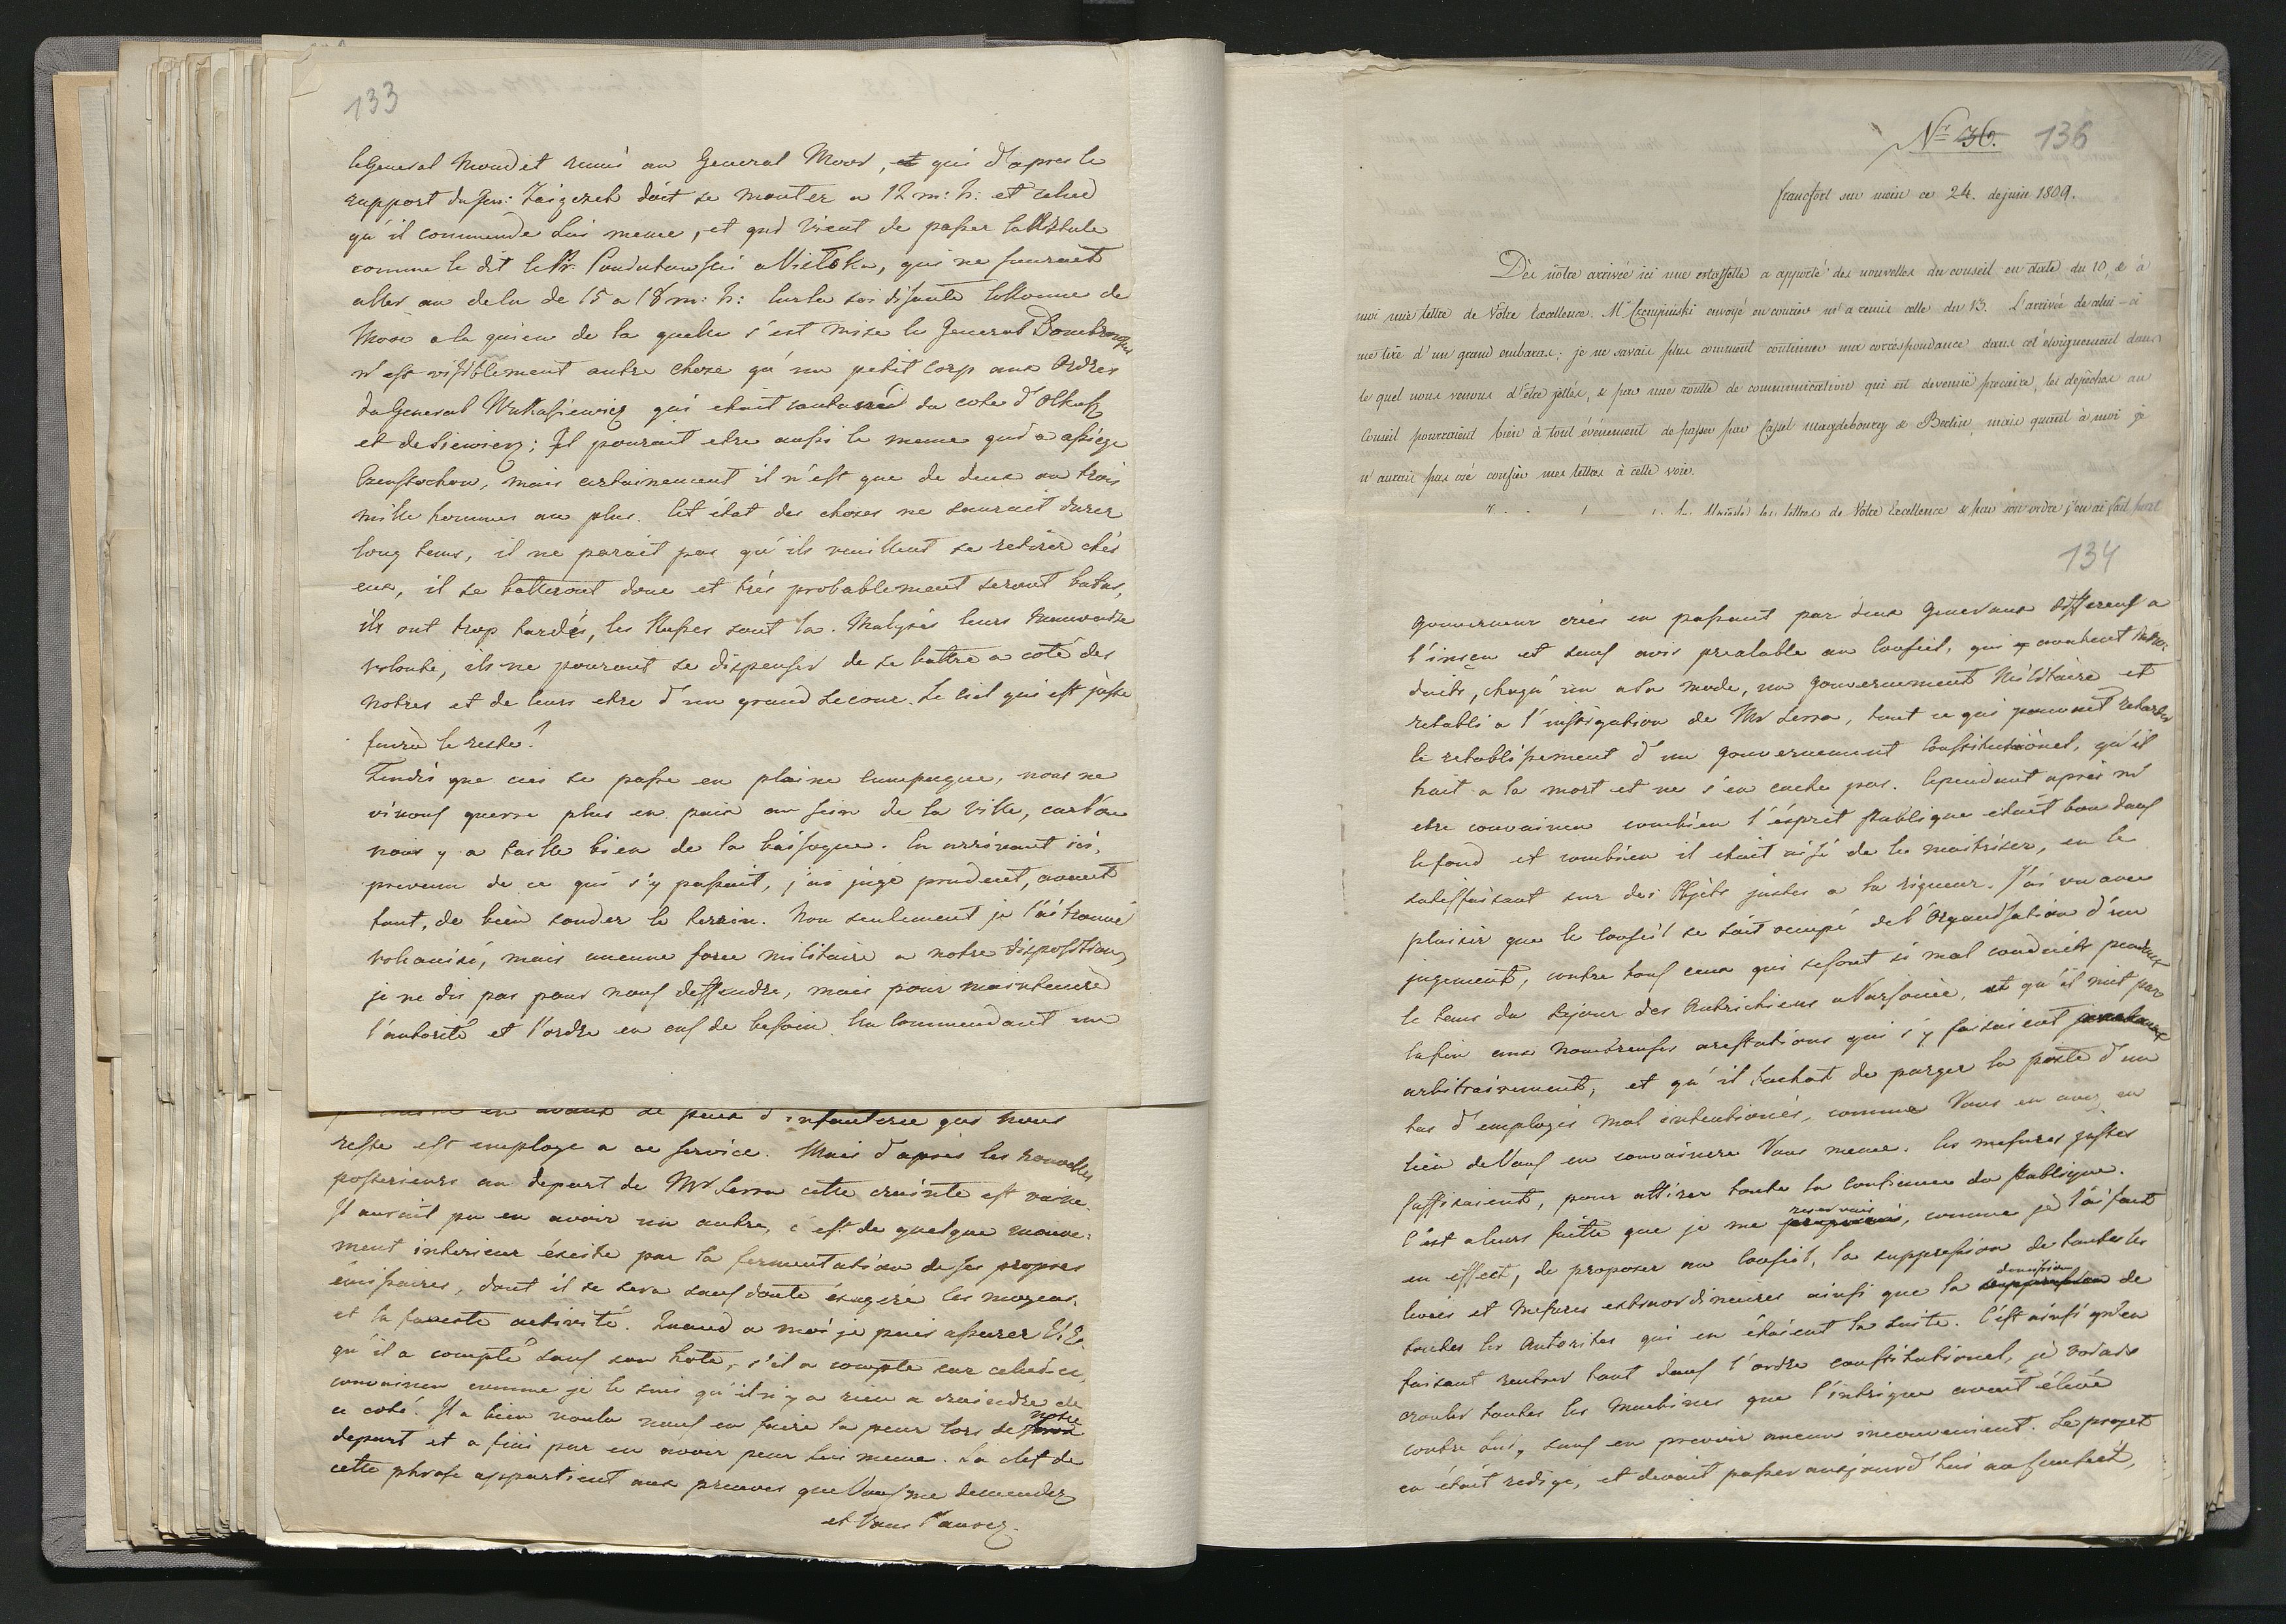 133
le General Mondet reuni au General Moor, et qui d'apres le
rapport du Gen: Zaigezek doit se monter a 12 m: h: et celui
qu'il commende lui meme, et qui vient de passer la Vistule
comme le dit le Pr: Poniatowski a Vietska, qui ne sauroit
aller au dela de 15 a 18 m: h: la soi disante collonne de
Moor a la queue de la quelle s'est mise le General Dombrowski
n'est visiblement autre chose qu'un petit corp aux Ordres
du General qui etait du cote d'Olkusz
et de Siewierz; Il pourait etre aussi le meme qui a assiege
Czenstochow, mais certainement il n'est que de deux ou trois
mille hommes au plus. Cet état des choses ne saurait durer
long tems, il ne parait pas qu'ils veuillent se retirer chés
eux, il se batteront donc et trés probablement seront batus,
ils ont trop tardés, les Russes sont la. Malgrés leurs mauvaise
volonté, ils ne pouront se dispenser de se battre a coté des
notres et de leurs etre d'un grand secour. Le ciel qui est juste
faira le reste!
Tandis que ceci se passe en plaine campagne, nous ne
vivons guerre plus en paix au sein de la ville, car l'on
nous y a taillé bien de la baisogne. En arrivant ici,
prevenu de ce qui s'y passait, j'ai jugé prudent, avant
tout, de bien sonder le terrin. Non seulement je l'ai trouvé
volcanisé, mais aucune force militaire a notre disposition,
je ne dis pas pour nous deffendre, mais pour maintenire
l'autorité et l'ordre en cas de besoin. Un Commendant un
en avant de peux d'infanterie qui nous
reste est employe a ce service. Mais d'après les nouvelles
posterieurs au depart de Mr Serra cette crainte est vaine.
Il aurait pu en avoir un autre, c'est de quelque mouve-
ment interieur éxcité par la fermentation de ses propres
émissaires, dont il se sera sans doute éxagéré les moyens,
et la funeste activité. Quand a moi je puis assurer V: E:
qu'il a compté sans son hote, s'il a compté sur celui-ci,
convaincu comme je le suis qu'il n'y a rien a craindre de
ce coté. Il a bien voulu nous en faire la peur lors de notre
depart et a fini par en avoir peur lui meme. La clef de
cette phrase appartient aux preuves que Vous me demendez
et Vous l'aurez.
Nr 36. 136
francfort sur mein ce 24. de juin 1809.
Dès nôtre arrivée ici une estaffette a apporté des nouvelles du conseil en date du 10, & à
moi une lettre de Votre Excellence. Mr Czempinski envoyé en courier m'a remis celle du 13. L'arrivée de celui-ci
me tire d'un grand embaras; je ne savais plus comment continuer ma correspondance dans cet éloignement dans
le quel nous venons d'être jettés, & par une route de communication qui est devenüe precaire, les depêches au
Conseil pourraient bien à tout événement de passer par Cassel magdebourg & Berlin, mais quant à moi je
n'aurais pas osé confier mes lettres à cette voie.
Majesté les lettres de Votre Excellence & par son ordre j'en ai fait part
134
gouverneur créés en passant par deux Generaux differens a
l'insçu et sans avis prealable au Conseil, qui avoient intro-
duits, chaqu'un a sa mode, un gouvernement Militaire et
retabli a l'instigation de Mr Serra, tout ce qui pouvait retarder
le retablissement d'un gouvernement Constitutionel, qu'il
hait a la mort et ne s'en cache pas. Cependant après m'
etre convaincu combien l'ésprit Publique etait bon dans
le fond et combien il etait aisé de les maitriser, en le
satisfaisant sur des Objets justes a la rigueur. J'ai vu avec
plaisir que le Conseil se soit ocupé de l'Organisation d'un
jugement, contre tous ceux qui se sont si mal conduits pendant
le tems du sejour des Autrichiens a Varsovie, et qu'il mit par
la fin aux nombreuses arestations qui s'y faisaient
arbitrairement, et qu'il tachat de purger la poste d'un
tas d'employés mal intentionés, comme Vous en avez eu
lieu de Vous en convaincre Vous meme. Ces mesures justes
suffisaient, pour attirer toute la Confience du Publique.
C'est a leurs suitte que je me reservais, comme je l'ai fait
en effect, de proposer au Conseil, la suppression de toutes les
levées et Mesures extraordineures ainsi que la demission de
toutes les Autorites qui en étaient la suite. C'est ainsi qu'en
faisant rentrer tout dans l'ordre constitutionel, je
crouler toutes les Machines que l'intrigue avoit élevé
contre Lui, sans en prevoir aucun inconvenient. Le projet
en était redigé, et devait passer aujourd'hui au Conseil,